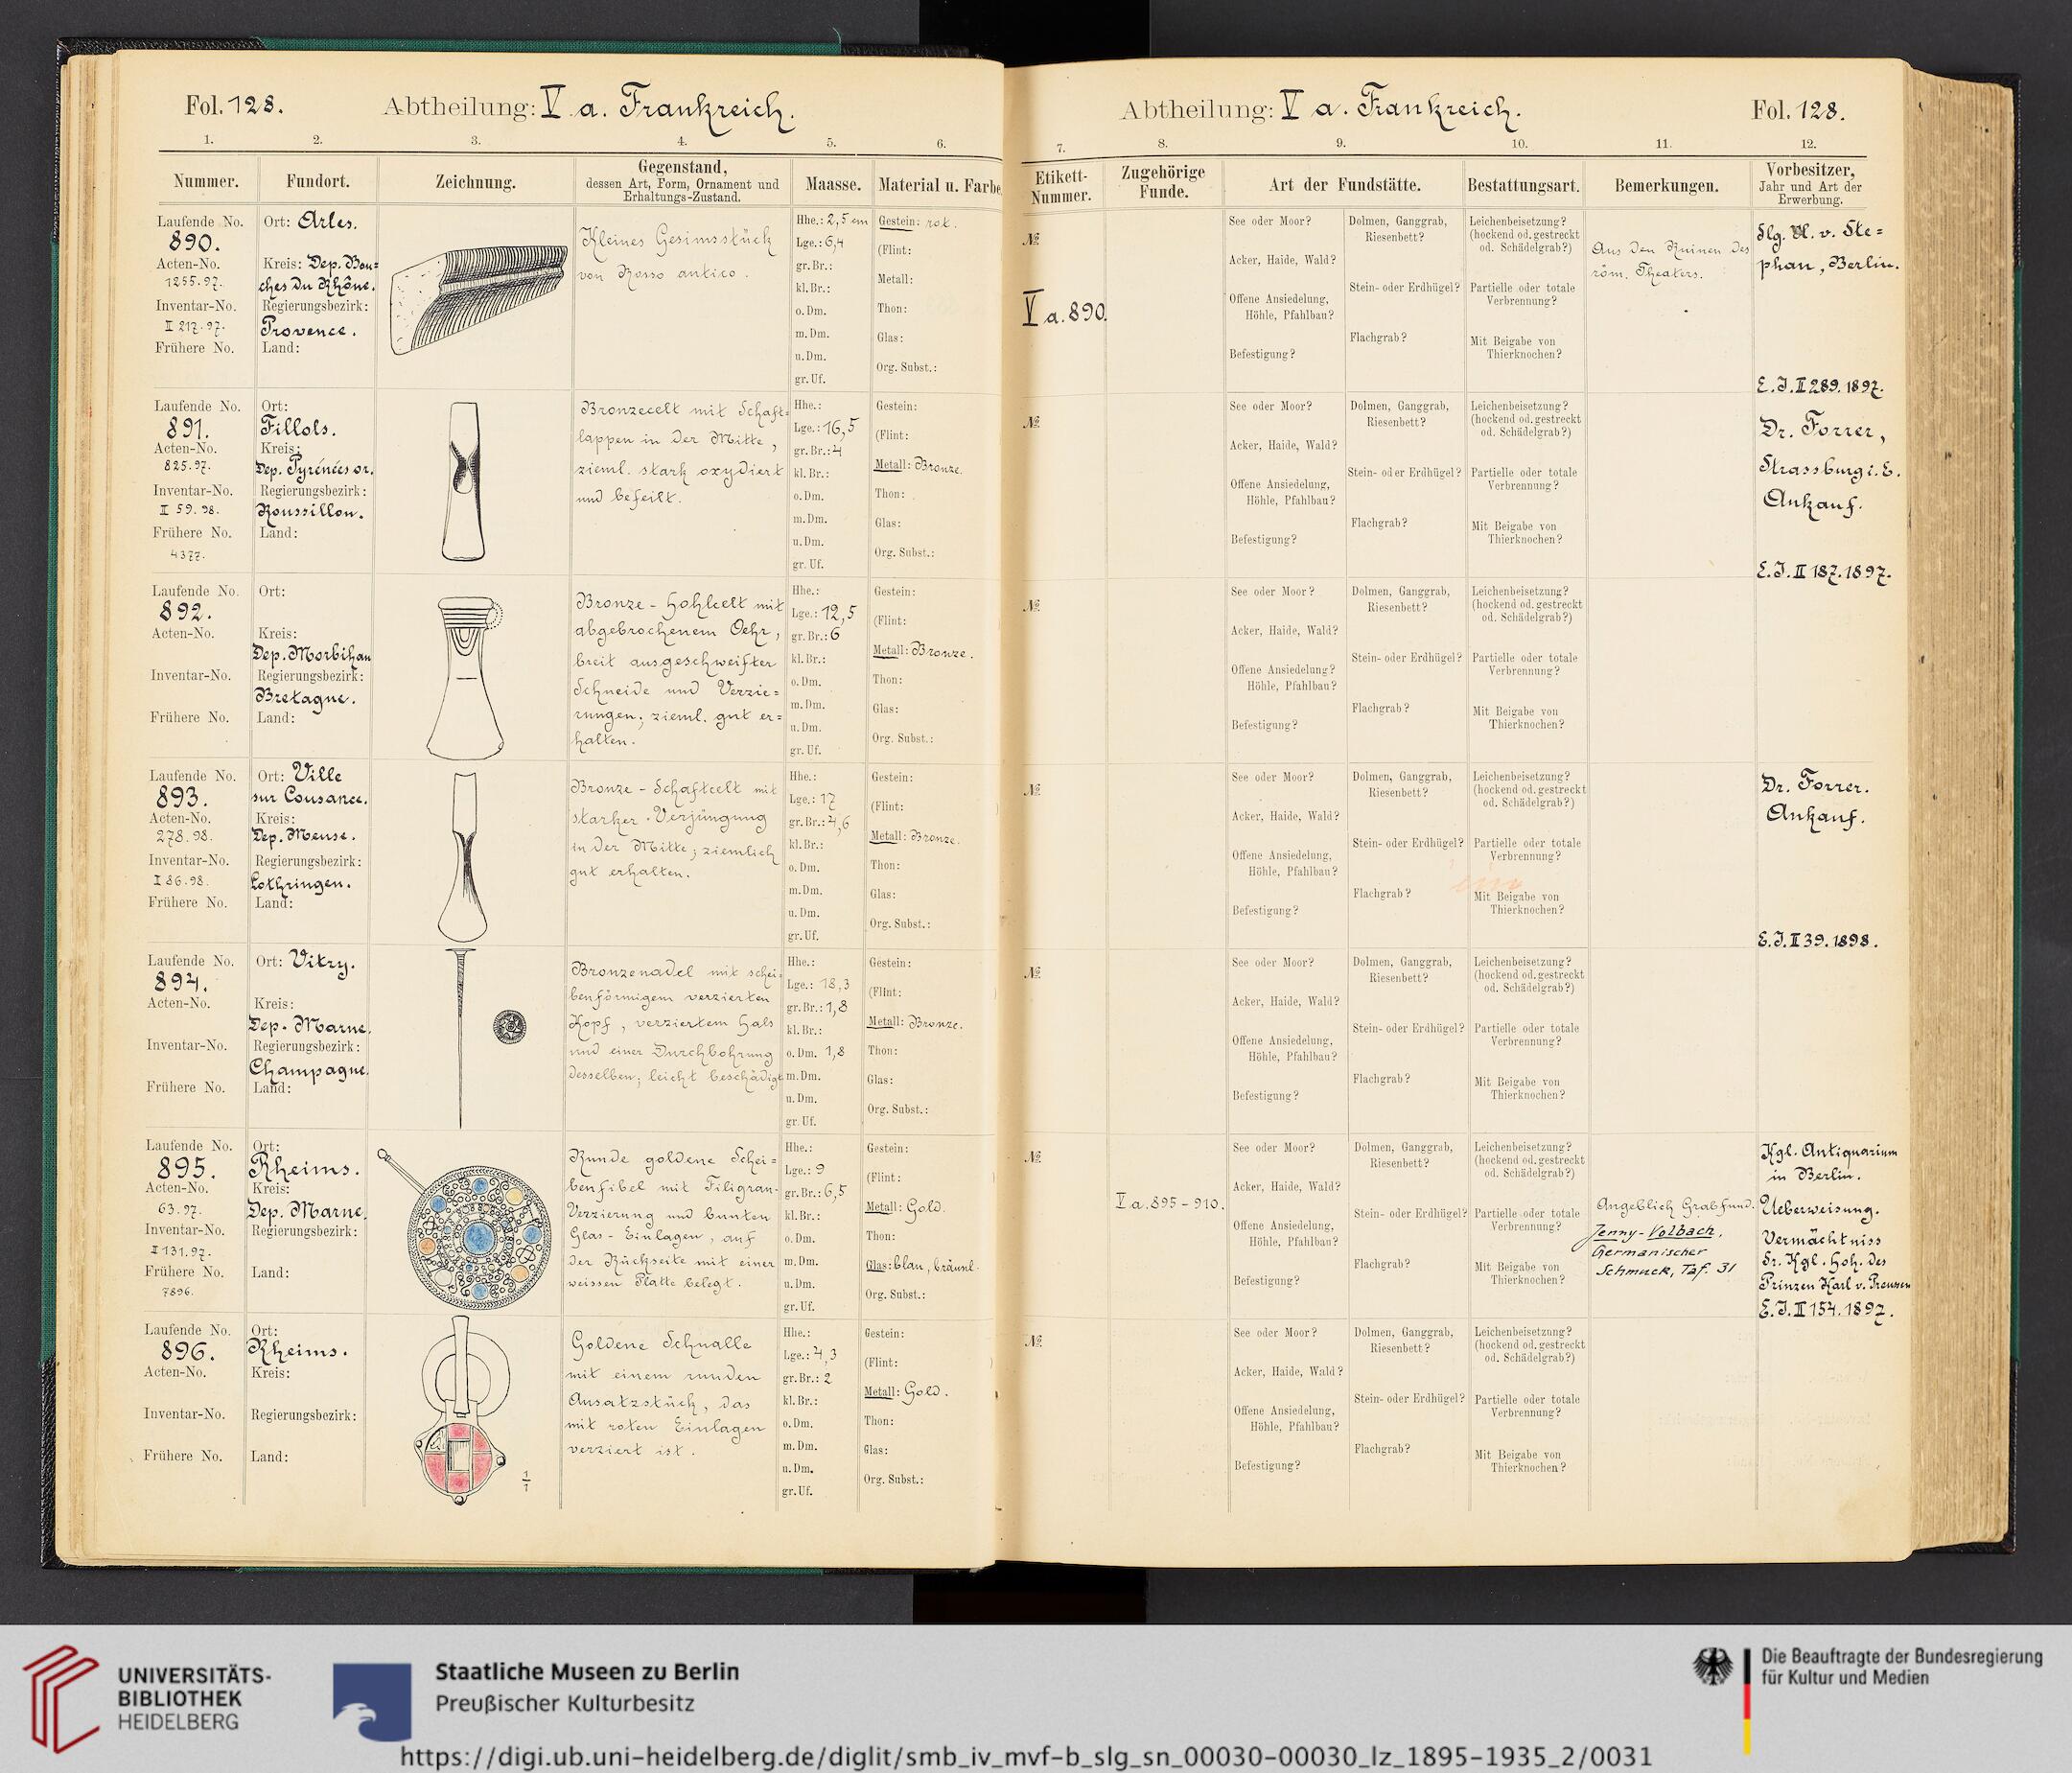 Fol. 128. Abtheilung: V a. Frankreich.
1. 2. 3. 4. 5. 6.
Nummer. Fundort. Zeichnung. Gegenstand, Maasse. Material u. Farbe.
dessen Art, Form, Ornament und
Erhaltungs-Zustand.
Laufende No. 890.
Acten-No. 1255.97.
Inventar-No. II 217.97.
Frühere No.
Ort: Arles.
Kreis: Dep. Bou=
ches du Rhône.
Regierungsbezirk:
Provence.
Land:
Kleines Gesimsstück
von Rosso antico.
Hhe.: 2,5 cm
Lge.: 6,4
gr. Br.:
kl. Br.:
o. Dm.
m. Dm.
u. Dm.
gr. Uf.
Gestein: rot.
(Flint:
Metall:
Thon:
Glas:
Org. Subst.:
Laufende No. 891.
Acten-No. 825.97.
Inventar-No. II 59.98.
Frühere No. 4377.
Ort:
Fillols.
Kreis:
Dep. Pyrénées or.
Regierungsbezirk:
Roussillon.
Land:
Bronzecelt mit Schaft=
lappen in der Mitte,
zieml. stark oxydiert
und befeilt.
Hhe.:
Lge.: 16,5
gr. Br.: 4
kl. Br.:
o. Dm.
m. Dm.
u. Dm.
gr. Uf.
Gestein:
(Flint:
Metall: Bronze.
Thon:
Glas:
Org. Subst.:
Laufende No. 892.
Acten-No.
Inventar-No.
Frühere No.
Ort:
Kreis:
Dep. Morbihan
Regierungsbezirk:
Bretagne.
Land:
Bronze-Hohlcelt mit
abgebrochenem Oehr,
breit ausgeschweifter
Schneide und Verzie=
rungen; zieml. gut er=
halten.
Hhe.:
Lge.: 12,5
gr. Br.: 6
kl. Br.:
o. Dm.
m. Dm.
u. Dm.
gr. Uf.
Gestein:
(Flint:
Metall: Bronze.
Thon:
Glas:
Org. Subst.:
Laufende No. 893.
Acten-No. 278.98.
Inventar-No. I 86.98.
Frühere No.
Ort: Ville
sur Cousance.
Kreis:
Dep. Meuse.
Regierungsbezirk:
Lothringen.
Land:
Bronze-Schaftcelt mit
starker Verjüngung
in der Mitte; ziemlich
gut erhalten.
Hhe.:
Lge.: 17
gr. Br.: 4,6
kl. Br.:
o. Dm.
m. Dm.
u. Dm.
gr. Uf.
Gestein:
(Flint:
Metall: Bronze.
Thon:
Glas:
Org. Subst.:
Laufende No. 894.
Acten-No.
Inventar-No.
Frühere No.
Ort: Vitry.
Kreis:
Dep. Marne.
Regierungsbezirk:
Champagne.
Land:
Bronzenadel mit schei=
benförmigem verzierten
Kopf, verziertem Hals
und einer Durchbohrung
desselben; leicht beschädigt
Hhe.:
Lge.: 18,3
gr. Br.: 1,8
kl. Br.:
o. Dm. 1,8
m. Dm.
u. Dm.
gr. Uf.
Gestein:
(Flint:
Metall: Bronze.
Thon:
Glas:
Org. Subst.:
Laufende No. 895.
Acten-No. 63.97.
Inventar-No. I 131.97.
Frühere No. 7896.
Ort:
Rheims.
Kreis:
Dep. Marne.
Regierungsbezirk:
Land:
Runde goldene Schei=
benfibel mit Filigran-
Verzierung und bunten
Glas-Einlagen, auf
der Rückseite mit einer
weissen Platte belegt.
Hhe.:
Lge.: 9
gr. Br.: 6,5
kl. Br.:
o. Dm.
m. Dm.
u. Dm.
gr. Uf.
Gestein:
(Flint:
Metall: Gold.
Thon:
Glas: blau, bräunl.
Org. Subst.:
Laufende No. 896.
Acten-No.
Inventar-No.
Frühere No.
Ort:
Rheims.
Kreis:
Regierungsbezirk:
Land:
1/1
Goldene Schnalle
mit einem runden
Ansatzstück, das
mit roten Einlagen
verziert ist.
Hhe.:
Lge.: 4,3
gr. Br.: 2
kl. Br.:
o. Dm.
m. Dm.
u. Dm.
gr. Uf.
Gestein:
(Flint:
Metall: Gold.
Thon:
Glas:
Org. Subst.:
Abtheilung: V a. Frankreich. Fol. 128.
7. 8. 9. 10. 11. 12.
Etikett-Nummer. Zugehörige Funde. Art der Fundstätte. Bestattungsart. Bemerkungen. Vorbesitzer,
Jahr und Art der
Erwerbung.
№
V a. 890.
See oder Moor?
Acker, Haide, Wald?
Offene Ansiedelung,
Höhle, Pfahlbau?
Befestigung?
Dolmen, Ganggrab,
Riesenbett?
Stein- oder Erdhügel?
Flachgrab?
Leichenbeisetzung?
(hockend od. gestreckt
od. Schädelgrab?)
Partielle oder totale
Verbrennung?
Mit Beigabe von
Thierknochen?
Aus den Ruinen des
röm. Theaters.
Slg. Vl. v. Ste=
phan, Berlin.
E.J. II 289. 1897.
№
See oder Moor?
Acker, Haide, Wald?
Offene Ansiedelung,
Höhle, Pfahlbau?
Befestigung?
Dolmen, Ganggrab,
Riesenbett?
Stein- oder Erdhügel?
Flachgrab?
Leichenbeisetzung?
(hockend od. gestreckt
od. Schädelgrab?)
Partielle oder totale
Verbrennung?
Mit Beigabe von
Thierknochen?
Dr. Forrer,
Strassburg i. E.
Ankauf.
E.J. II 187. 1897.
№
See oder Moor?
Acker, Haide, Wald?
Offene Ansiedelung?
Höhle, Pfahlbau?
Befestigung?
Dolmen, Ganggrab,
Riesenbett?
Stein- oder Erdhügel?
Flachgrab?
Leichenbeisetzung?
(hockend od. gestreckt
od. Schädelgrab?)
Partielle oder totale
Verbrennung?
Mit Beigabe von
Thierknochen?
№
See oder Moor?
Acker, Haide, Wald?
Offene Ansiedelung,
Höhle, Pfahlbau?
Befestigung?
Dolmen, Ganggrab,
Riesenbett?
Stein- oder Erdhügel?
Flachgrab?
Leichenbeisetzung?
(hockend od. gestreckt
od. Schädelgrab?)
Partielle oder totale
Verbrennung?
Mit Beigabe von
Thierknochen?
Dr. Forrer.
Ankauf.
E.J. II 39. 1898.
№
See oder Moor?
Acker, Haide, Wald?
Offene Ansiedelung,
Höhle, Pfahlbau?
Befestigung?
Dolmen, Ganggrab,
Riesenbett?
Stein- oder Erdhügel?
Flachgrab?
Leichenbeisetzung?
(hockend od. gestreckt
od. Schädelgrab?)
Partielle oder totale
Verbrennung?
Mit Beigabe von
Thierknochen?
№
V a. 895-910.
See oder Moor?
Acker, Haide, Wald?
Offene Ansiedelung,
Höhle, Pfahlbau?
Befestigung?
Dolmen, Ganggrab,
Riesenbett?
Stein- oder Erdhügel?
Flachgrab?
Leichenbeisetzung?
(hockend od. gestreckt
od. Schädelgrab?)
Partielle oder totale
Verbrennung?
Mit Beigabe von
Thierknochen?
Angeblich Grabfund.
Jenny-Volbach,
Germanischer
Schmuck, Taf. 31
Kgl. Antiquarium
in Berlin.
Ueberweisung.
Vermächtniss
Sr. Kgl. Hoh. des
Prinzen Karl v. Preussen
E.J. II 154. 1897.
№
See oder Moor?
Acker, Haide, Wald?
Offene Ansiedelung,
Höhle, Pfahlbau?
Befestigung?
Dolmen, Ganggrab,
Riesenbett?
Stein- oder Erdhügel?
Flachgrab?
Leichenbeisetzung?
(hockend od. gestreckt
od. Schädelgrab?)
Partielle oder totale
Verbrennung?
Mit Beigabe von
Thierknochen?
UNIVERSITÄTS-
BIBLIOTHEK
HEIDELBERG
Staatliche Museen zu Berlin
Preußischer Kulturbesitz
Die Beauftragte der Bundesregierung
für Kultur und Medien
https://digi.ub.uni-heidelberg.de/diglit/smb_iv_mvf-b_slg_sn_00030-00030_lz_1895-1935_2/0031